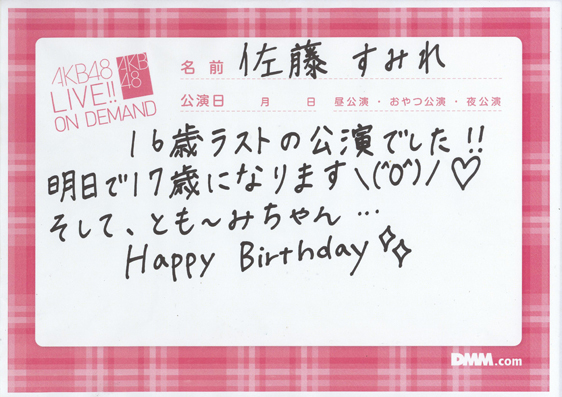 AKB48
LIVE!!
ON DEMAND
AKB
48
名前 佐藤 すみれ
公演日 月 日 昼公演・おやつ公演・夜公演
16歳ラストの公演でした!!
明日で17歳になります\(^O^)/♡
そして、とも〜みちゃん…
Happy Birthday
DMM.com